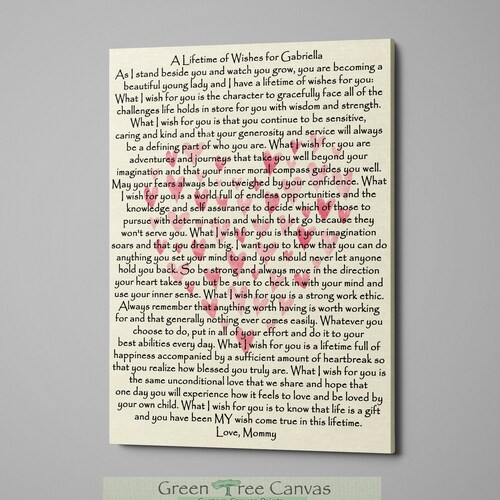 A Lifetime of Wishes for Gabriella
As I stand beside you and watch you grow, you are becoming a
beautiful young lady and I have a lifetime of wishes for you:
What I wish for you is the character to gracefully face all of the
challenges life holds in store for you with wisdom and strength.
What I wish for you is that you continue to be sensitive,
caring and kind and that your generosity and service will always
be a defining part of who you are. What I wish for you are
adventures and journeys that take you well beyond your
imagination and that your inner moral compass guides you well.
May your fears always be outweighed by your confidence. What
I wish for you is a world full of endless opportunities and the
knowledge and self assurance to decide which of those to
pursue with determination and which to let go because they
won't serve you. What I wish for you is that your imagination
soars and that you dream big. I want you to know that you can do
anything you set your mind to and you should never let anyone
hold you back. So be strong and always move in the direction
your heart takes you but be sure to check in with your mind and
use your inner sense. What I wish for you is a strong work ethic.
Always remember that anything worth having is worth working
for and that generally nothing ever comes easily. Whatever you
choose to do, put in all of your effort and do it to your
best abilities every day. What I wish for you is a lifetime full of
happiness accompanied by a sufficient amount of heartbreak so
that you realize how blessed you truly are. What I wish for you is
the same unconditional love that we share and hope that
one day you will experience how it feels to love and be loved by
your own child. What I wish for you is to know that life is a gift
and you have been MY wish come true in this lifetime.
Love, Mommy
Green Tree Canvas